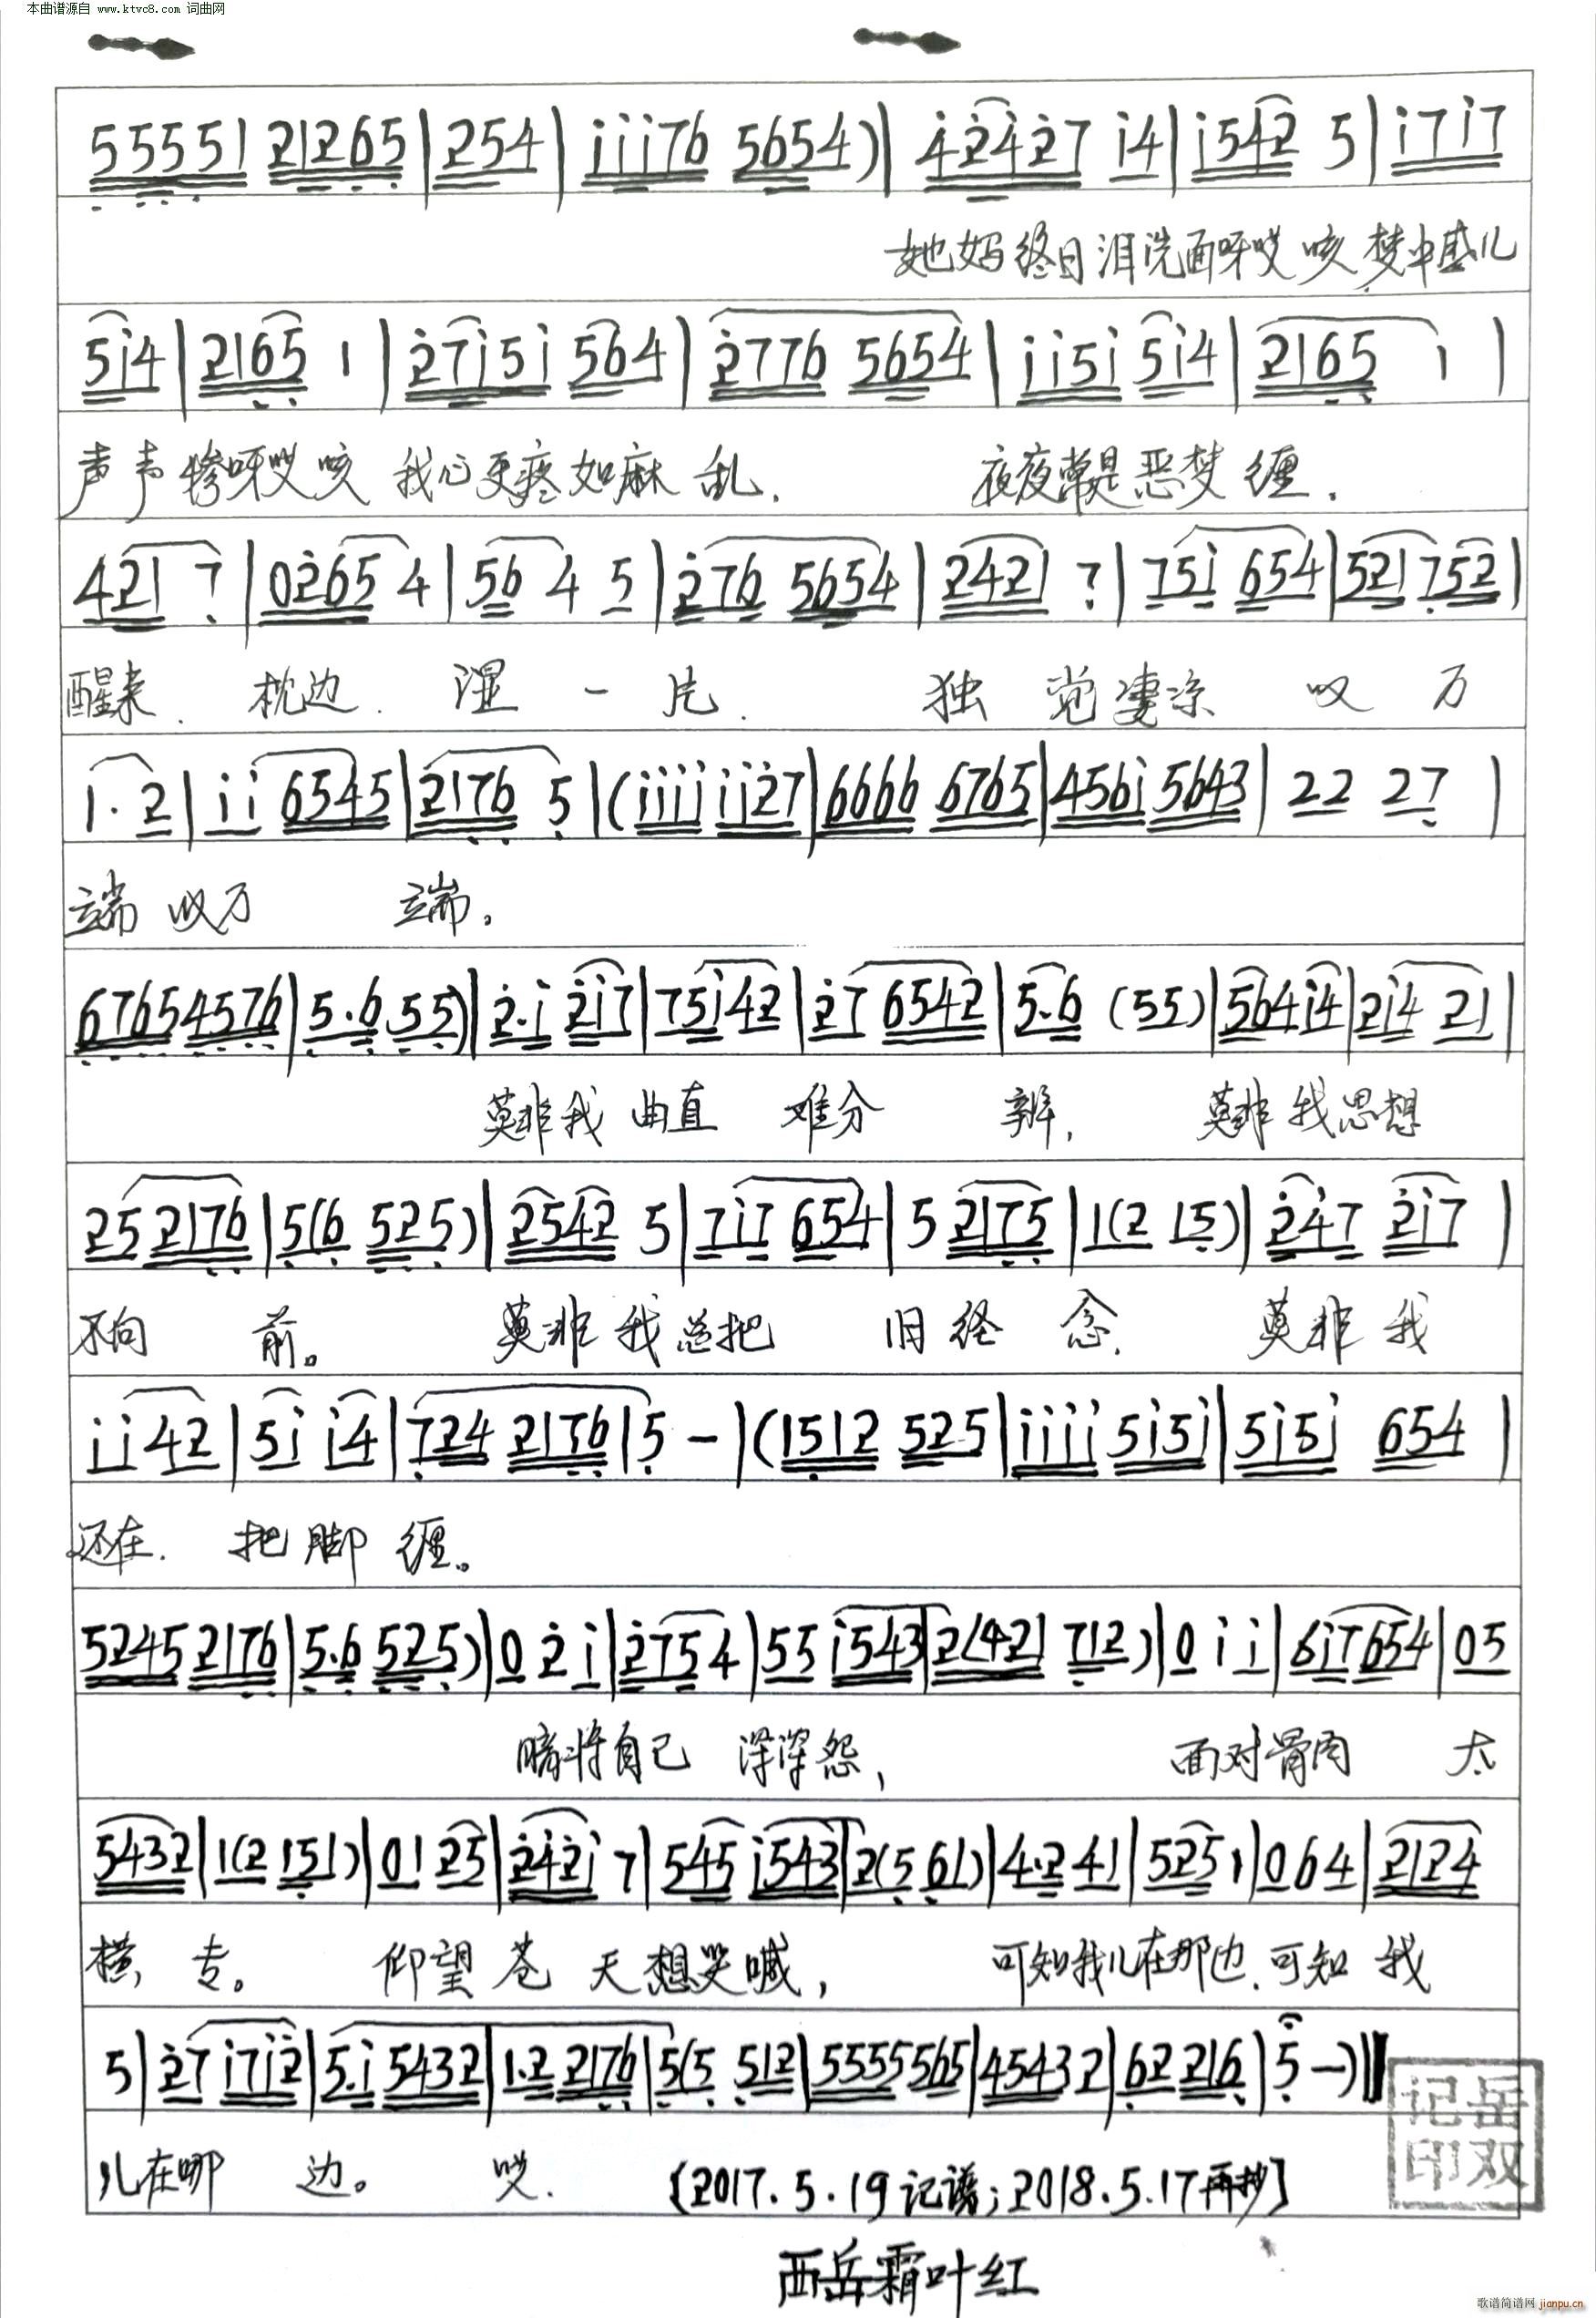 本曲谱源自 www.ktvc8.com 词曲网
55551 21265 | 254 | iii76 5654) | 42427 i4 | i542 5 | i7i7
她妈终日泪洗面呀哎 咳 梦中盛儿
5i4 | 2165 1 | 27i5i 564 | 2776 5654 | ii5i 5i4 | 2165 i |
声声惨呀哎咳 我心更疼如麻乱. 夜夜常是恶梦缠.
421 7 | 0265 4 | 56 4 5 | 276 5654 | 2421 7 | 75i 654 | 521 752 |
醒来. 枕边. 湿一片. 独觉凄凉 叹万
1·2 | ii 6545 | 2176 5 | (iiii ii27 | 6666 6765 | 456i 5643 | 22 27 |
端 叹万 端。
6765 4576 | 5·6 55) | 2·i 2i7 | 75i42 | 27 6542 | 5·6 (55) | 564i4 | 2i4 21 |
莫非我 曲直 难分 辨, 莫非我思想
25 2176 | 5(6 525) | 2542 5 | 7i7 654 | 5 2175 | 1(2 15) | 247 2i7 |
不向 前。 莫非我总把 旧经 念. 莫非我
ii42 | 5i i4 | 724 2176 | 5 - | (1512 525 | iiii 5i5i | 5i5i 654 |
还在. 把脚 缠。
5245 2176 | 5·6 525) | 0 2 i | 275 4 | 55 i543 | 2(421 712) | 0 i i | 6i7654 | 05
暗将自己 深深怨, 面对骨肉 太
5432 | 1(2 151) | 01 25 | 242i 7 | 545 i543 | 2(5 61) | 4·2 41 | 525 1 | 0 6 4 | 2124
横, 专。 仰望苍天想哭喊, 可知我儿在那边. 可知我
5 | 27 i7i2 | 5·i 5432 | 1·2 2176 | 5(5 512 | 5555 565 | 4543 2 | 62 216 | 5 -) ‖
儿在哪 边。 哎. [2017.5.19记谱;2018.5.17再抄]
岳双
记印
西岳霜叶红
歌谱简谱网 jianpu.cn